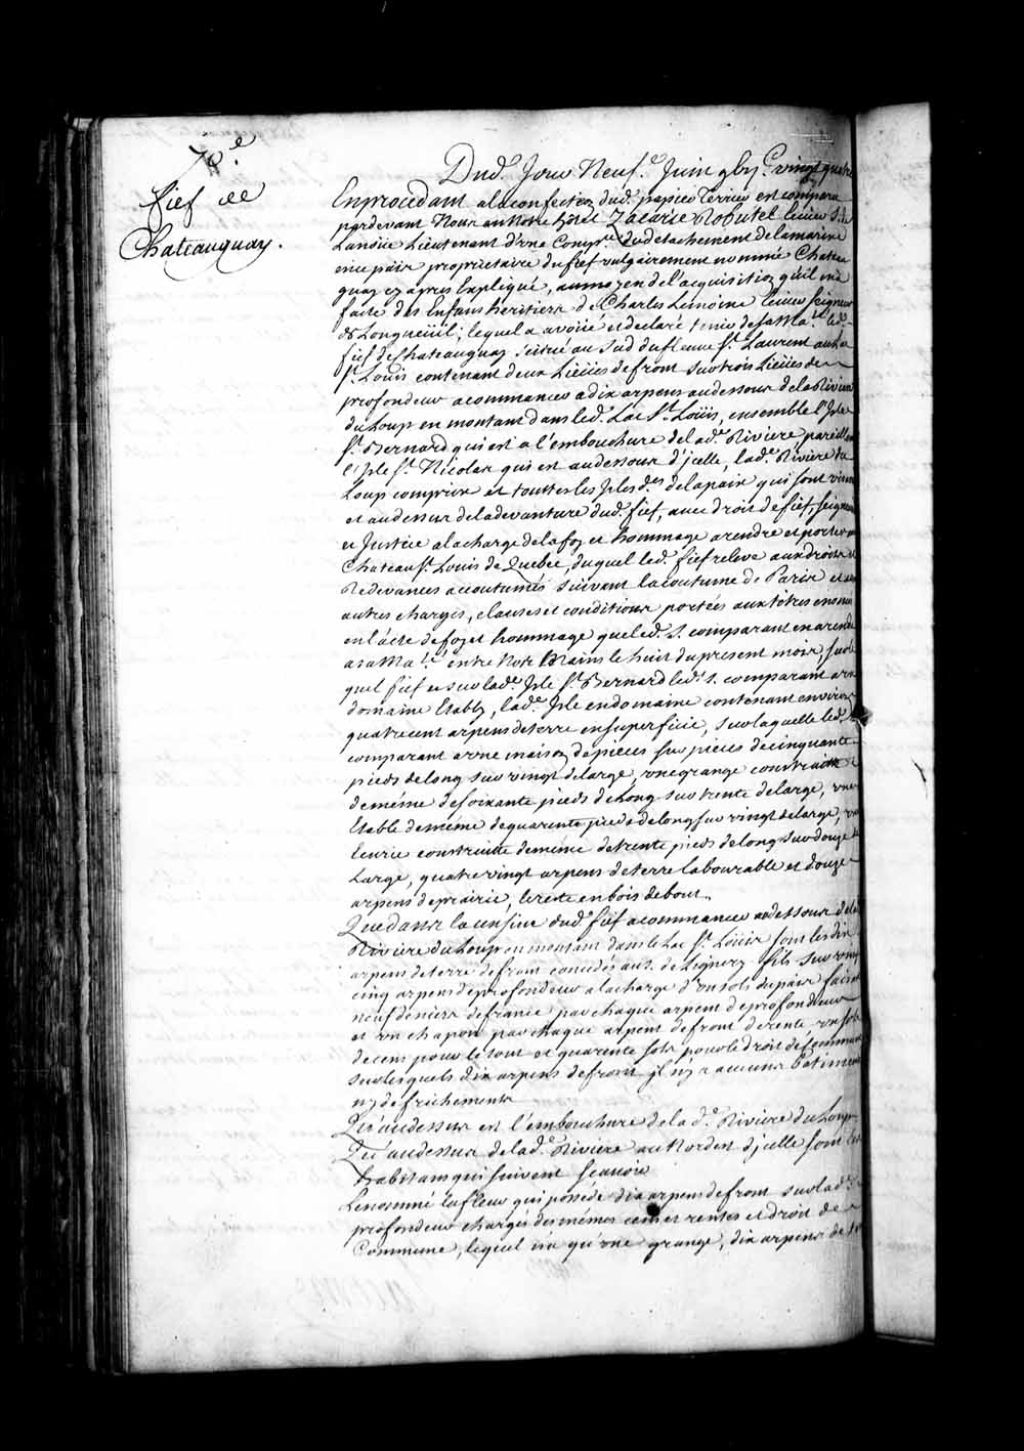 70.e
fief de
Chateauguay.
Dud. Jour Neuf.e Juin vingt quatre
En procedant a la confection dud. papier Terrier est comparu
pardevant Nous en Notre hôtel Zacarie Robutel ecuier S. de
Lanoüe Lieutenant d'vne Comp.ie du detachement de la marine
en ce païs proprietaire du fief vulgairement nommé Chateau
guay cy apres Expliqué, au moyen de l'acquisition qu'il en a
faite des Enfans heritiers de Charles Lemoine Ecuier Seigneur
de Longueüil; lequel a avoüé et declaré tenir de sa Ma.té led.
fief de Chateauguay scitué au Sud du fleuve S.t Laurent au Lac
S.t Loüis contenant deux Lieües de front sur trois Lieües de
profondeur a commancer a dix arpens au dessous de la Riviere
du Loup en montant dans led. Lac S.t Loüis, ensemble l'Isle
S.t Bernard qui est a l'embouchure de lad.e Riviere, pareillem
l'Isle S.t Nicolas qui est au dessous d'jcelle, lad.e Riviere du
Loup comprise et touttes les Jsles d.es de la paix qui sont vis a vis
et au dessus de la devanture dud. fief, avec droit de fief, Seigneurie
et Justice a la charge de la foy et hommage a rendre et porter au
Chateau S.t Louis de Quebec, duquel led. fief releve aux droits et
Redevances accoutumés suivant la coutume de Paris et aux
autres charges, clauses et conditions portées aux titres enoncés
en l'acte de foy et hommage que led. S. comparant en a rendu
a sa Ma.té entre Nos Mains le huit du present mois, sur le
quel fief et sur lad.e Jsle S.t Bernard led. S. comparant a vn
domaine Etably, lad.e Jsle en domaine contenant environ
quatre cent arpens de terre en superficie, sur laquelle led. S.
comparant a vne maison de pieces sur pieces de cinquante
pieds de long sur vingt de large, vne grange construitte
de même de soixante pieds de long sur trente de large, vne
Etable de même de quarente pieds de long sur vingt de large, vne
Ecurie construitte de même de trente pieds de long sur douze de
Large, quatre vingt arpens de terre labourable et douze
arpens de prairie, le reste en bois debout.
Que dans la censive dud. fief a commancer au dessous de lad.
Riviere du Loup en montant dans le Lac S.t Loüis sont les dix
arpens de terre de front concedés au S. de Lignery fils sur vingt
cinq arpens de profondeur a la charge d'vn sols du païs faisant
neuf deniers de france par chaque arpent de profondeur
et vn chapon par chaque arpent de front de rente, vn sols
de cens pour le tout et quarente sols pour le droit de commune
sur lesquels dix arpens de front jl n'y a aucuns batimens
ny defrichements
Qu'au dessus est l'embouchure de lad.e Riviere du Loup
Qu'au dessus de lad.e Riviere au Nordest d'jcelle sont les
habitans qui suivent sçavoir
Le nommé Lafleur qui possede dix arpens de front sur lad.
profondeur chargés des mêmes cens et rentes et droit de
Commune, lequel n'a qu'vne grange, dix arpens de